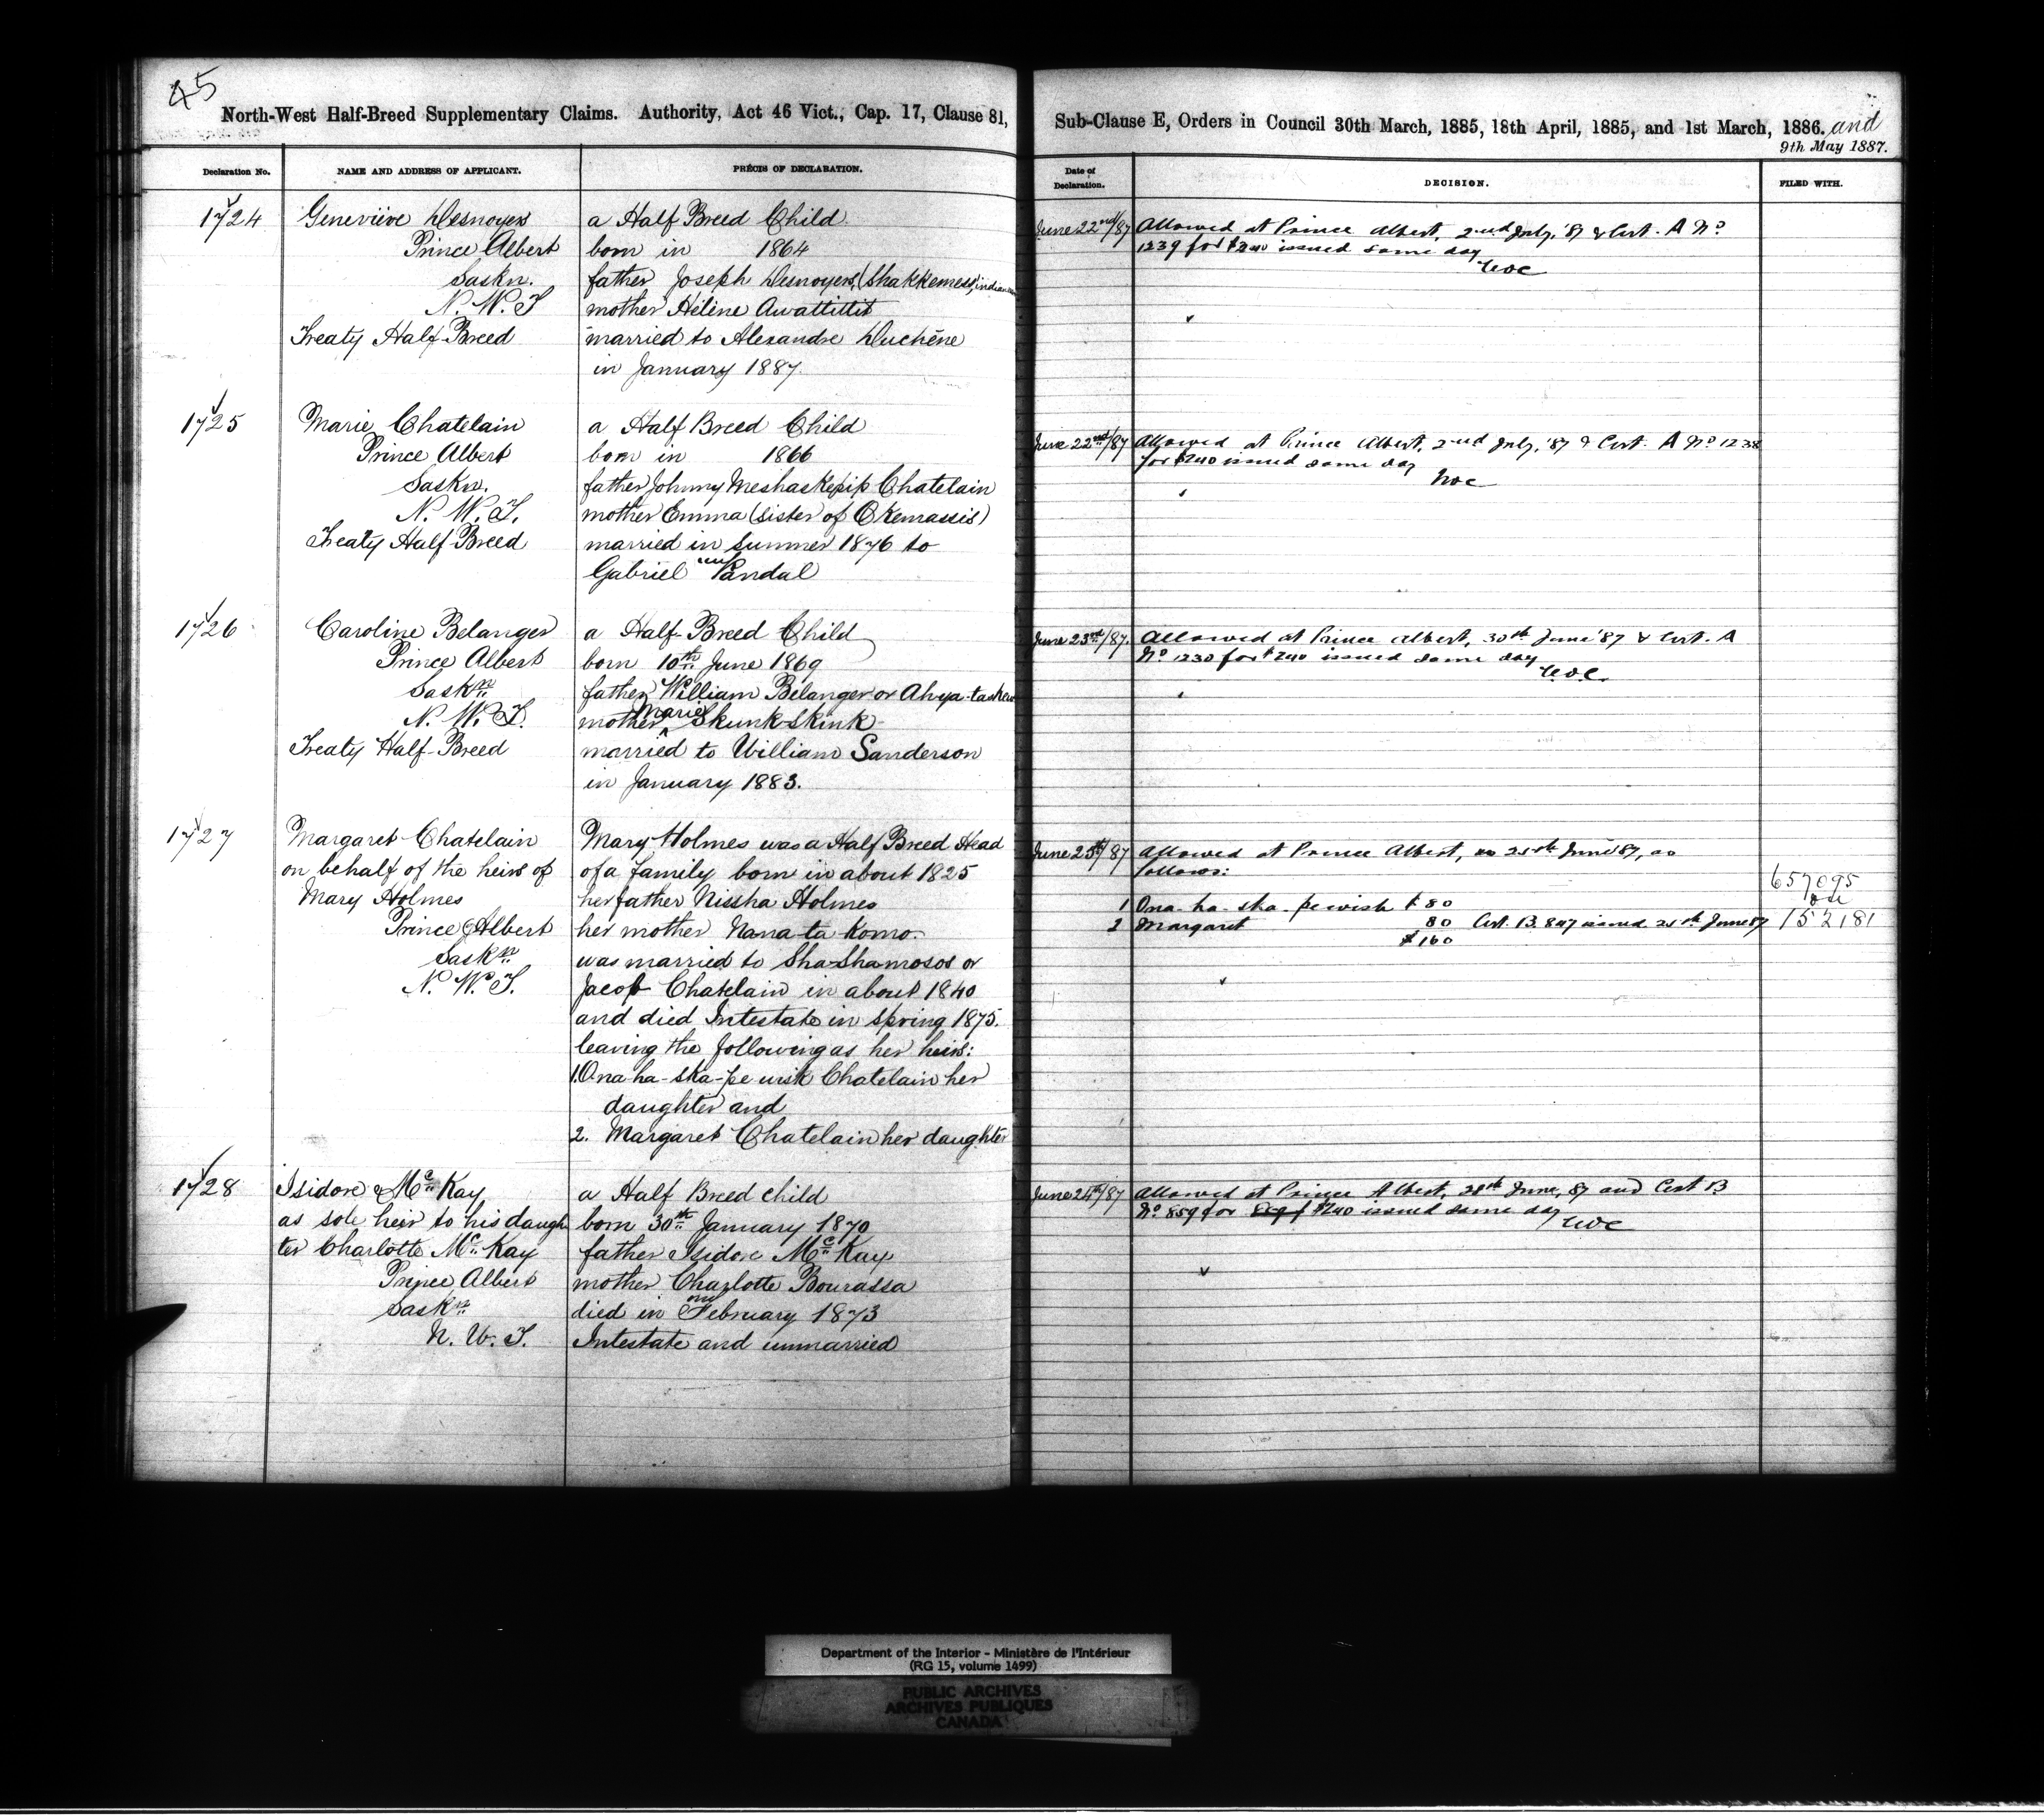 45
North-West Half-Breed Supplementary Claims. Authority, Act 46 Vict., Cap. 17, Clause 81,
Declaration No. NAME AND ADDRESS OF APPLICANT. PRÉCIS OF DECLARATION.
1724 Geneviève Desnoyers a Half Breed Child
Prince Albert born in 1864
Saskn. father Joseph Desnoyers, (Shakkemess,
N. W. T mother Hélène Awattittit
Treaty Half-Breed married to Alexandre Duchêne
in January 1887.
1725 Marie Chatelain a Half Breed Child
Prince Albert born in 1866
Saskn. father Johnny Meshaskepip Chatelain
N. W. T. mother Emma (sister of Okemassis)
Treaty Half-Breed married in summer 1876 to
Gabriel Pandal
1726 Caroline Belanger a Half-Breed Child
Prince Albert born 10th June 1869
Saskn father William Belanger or
N. W. T. mother Marie Skunk-Skink
Treaty Half-Breed married to William Sanderson
in January 1883.
1727 Margaret Chatelain Mary Holmes was a Half Breed Head
on behalf of the heirs of of a family born in about 1825
Mary Holmes her father Nissha Holmes
Prince Albert her mother Nana-ta-Komo.
Saskn was married to Sha-Shamosos or
N. W. T. Jacob Chatelain in about 1840
and died Intestate in spring 1875.
leaving the following as her heirs:
1. Ona-ha-ska-pe wisk Chatelain her
daughter and
2. Margaret Chatelain her daughter
1728 Isidore McKay a Half Breed child
as sole heir to his daugh born 30th January 1870
ter Charlotte McKay father Isidore McKay
Prince Albert mother Charlotte Bourassa
Saskn died in February 1873
N. W. T. Intestate and unmarried
Sub-Clause E, Orders in Council 30th March, 1885, 18th April, 1885, and 1st March, 1886. and
9th May 1887.
Date of Declaration. DECISION. FILED WITH.
June 22nd/87 Allowed at Prince Albert, 2nd July, '87 & Cert. A No
1239 for $240 issued same day
June 22nd/87 Allowed at Prince Albert, 2nd July, '87 & Cert. A No 1238
for $240 issued same day
June 23rd/87. Allowed at Prince Albert, 30th June '87 & Cert. A
No 1230 for $240 issued same day
June 25th/87 Allowed at Prince Albert, 25th June '87, as
follows:
657095
1 Ona-ha-ska-pewish $80
2 Margaret 80 Cert. B. 847 issued 25th June 87 152181
$160
June 24th/87 Allowed at Prince Albert, 28th June, 87 and Cert B
No 859 for $240 issued same day
Department of the Interior - Ministère de l'Intérieur
(RG 15, volume 1499)
PUBLIC ARCHIVES
ARCHIVES PUBLIQUES
CANADA